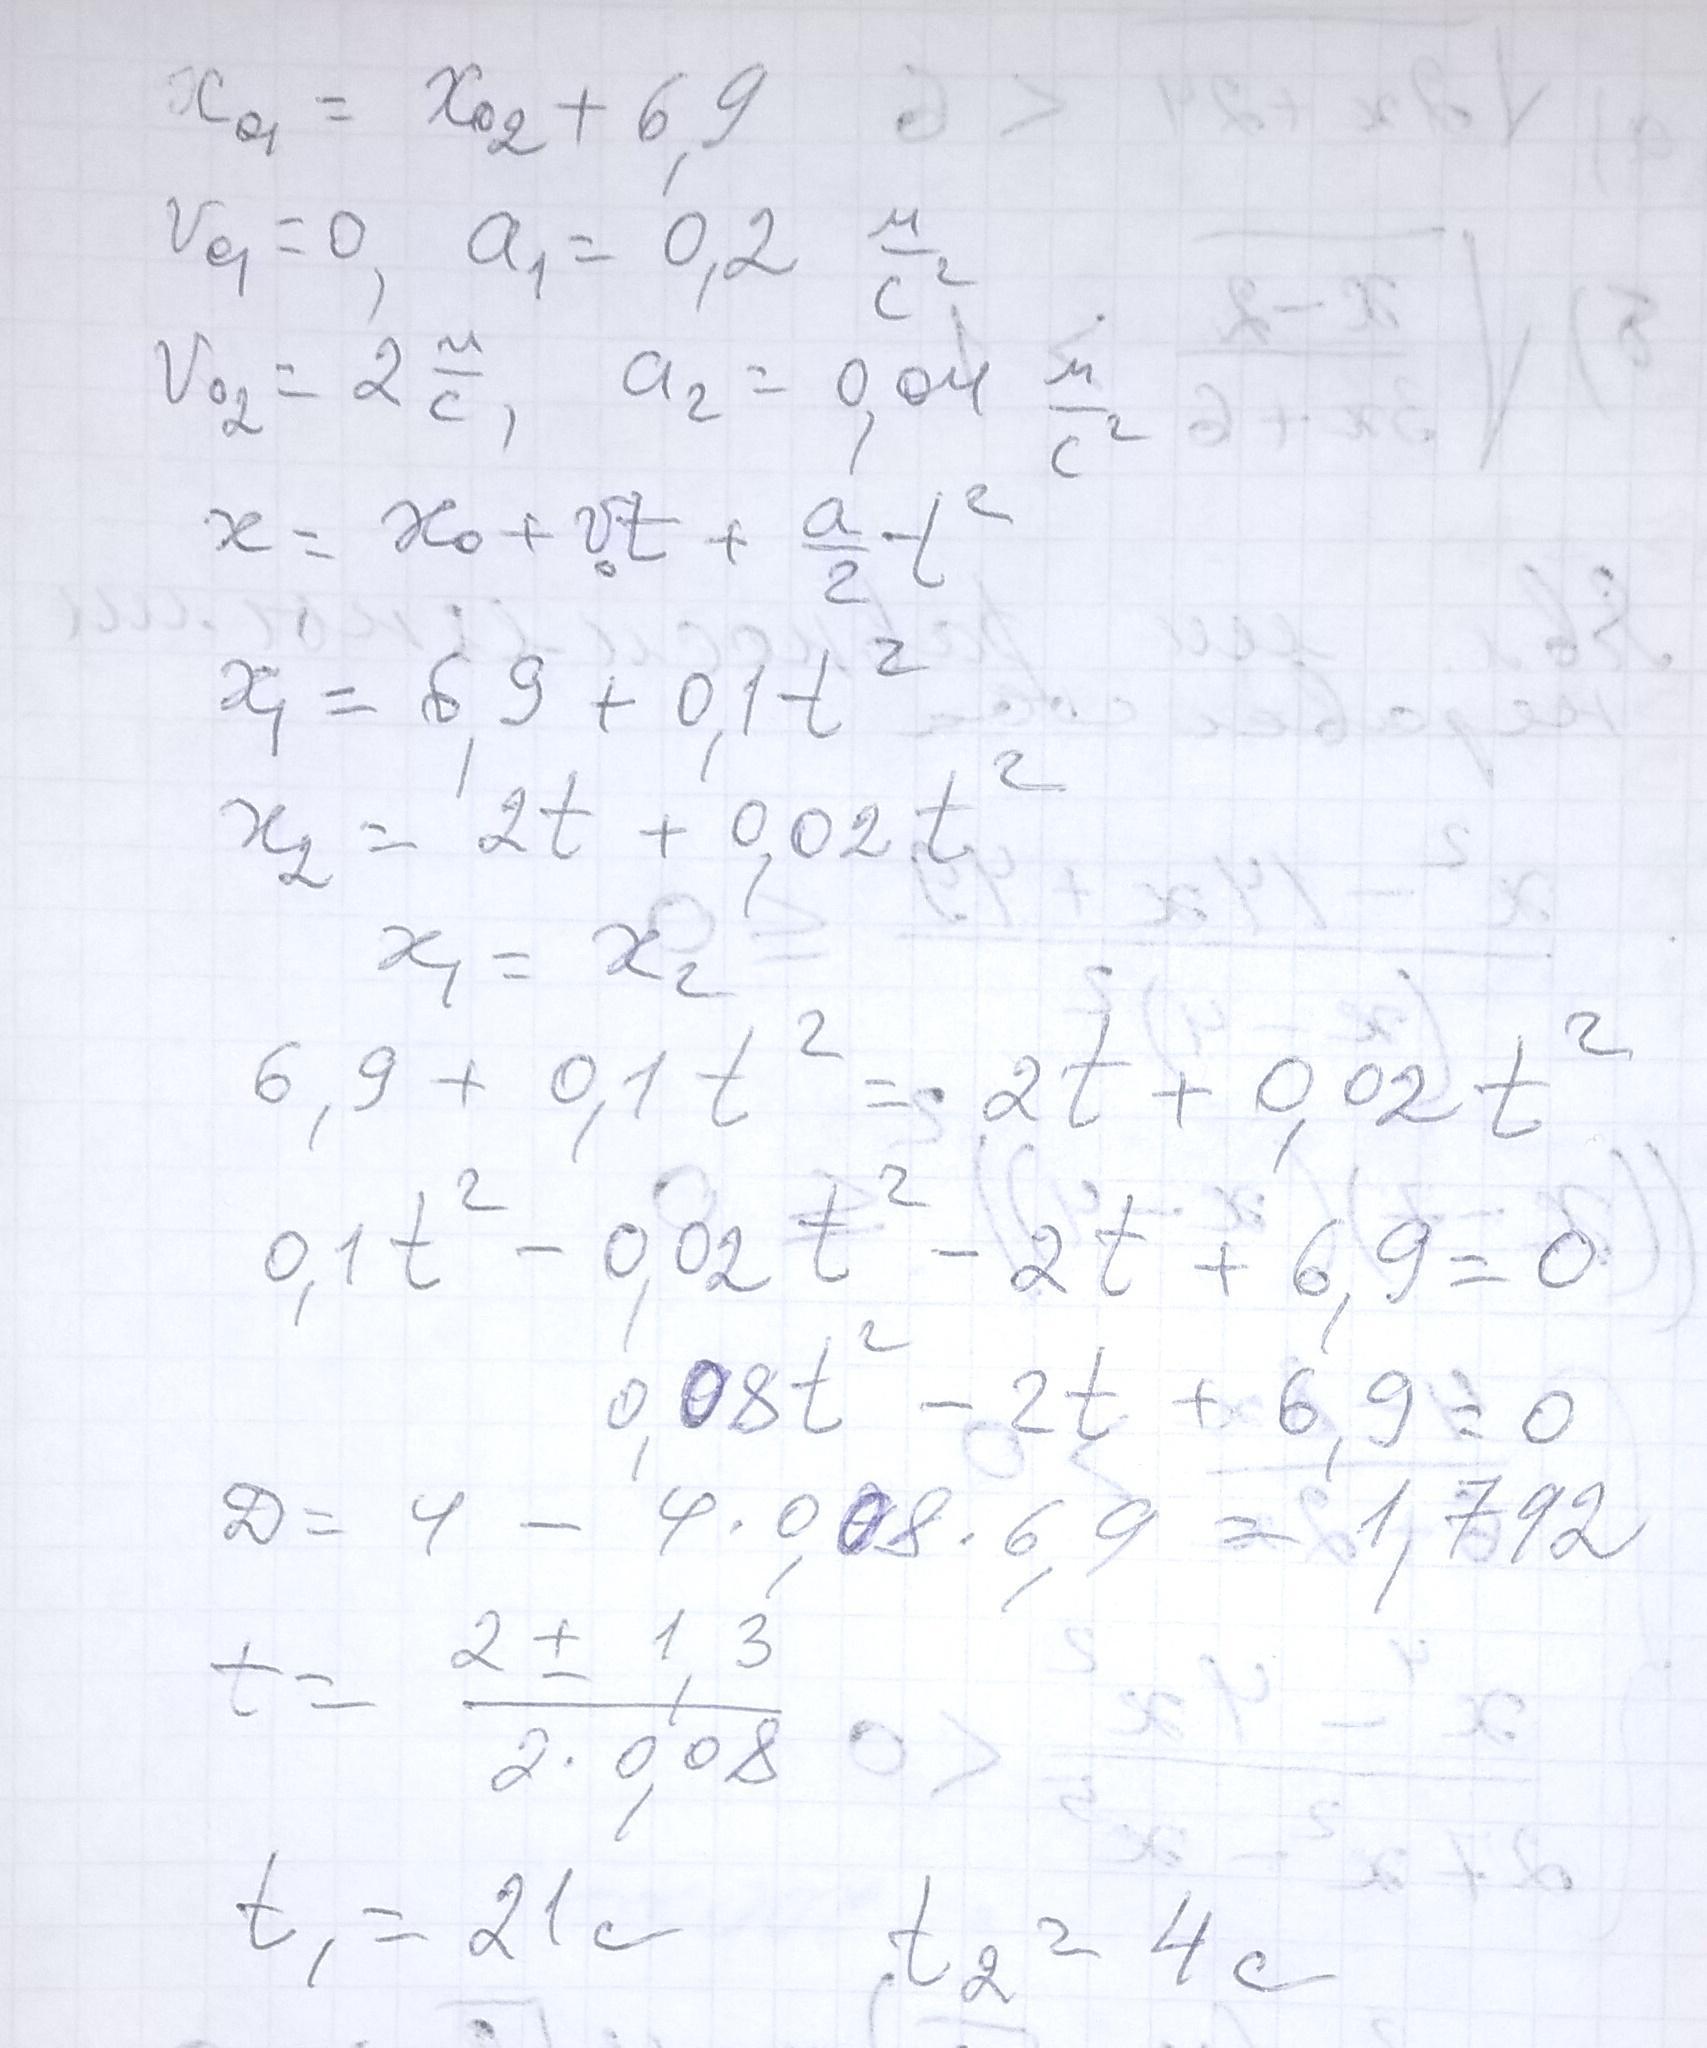 x₀₁ = x₀₂ + 6,9
v₀₁ = 0, a₁ = 0,2 м/с²
v₀₂ = 2 м/с, a₂ = 0,04 м/с²
x = x₀ + v₀t + a/2 t²
x₁ = 6,9 + 0,1t²
x₂ = 2t + 0,02t²
x₁ = x₂
6,9 + 0,1t² = 2t + 0,02t²
0,1t² - 0,02t² - 2t + 6,9 = 0
0,08t² - 2t + 6,9 = 0
D = 4 - 4·0,08·6,9 = 1,792
t = (2 ± 1,3)/(2·0,08)
t₁ = 21с t₂ = 4с